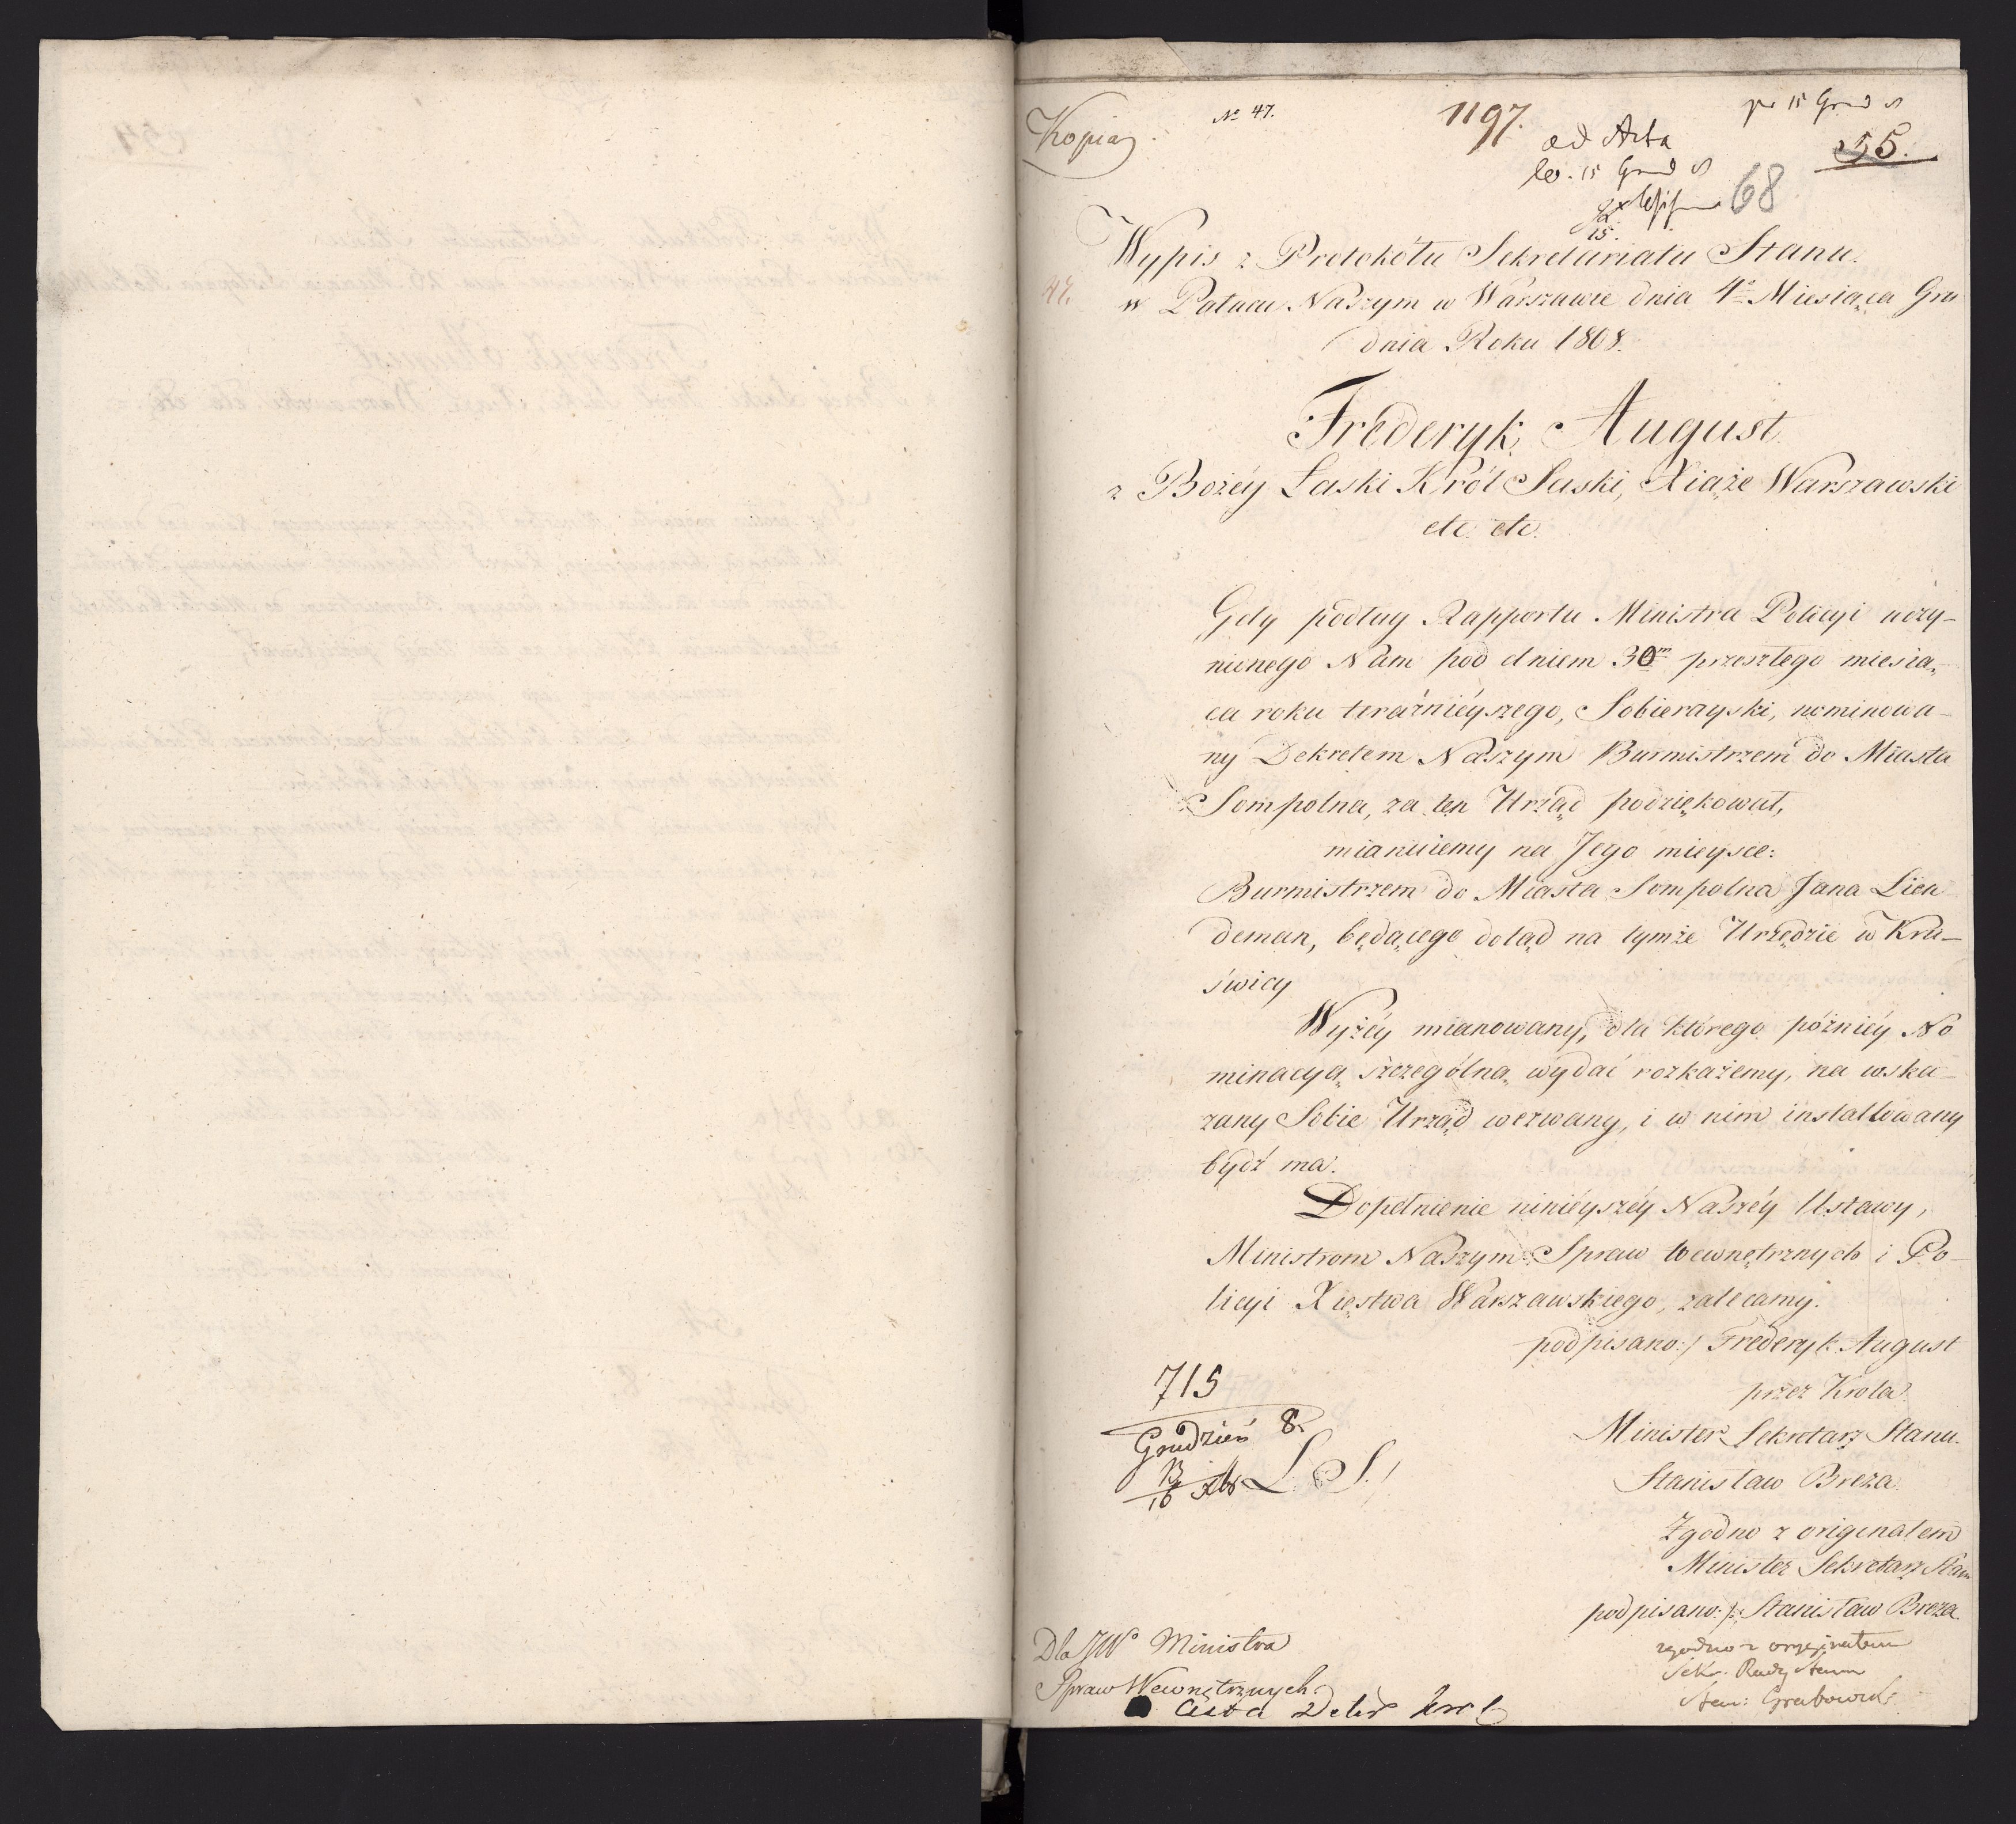 Kopia
№ 47.
1197.
ad Acta
15 Grud
55.
68
15.
Wypis z Protokółu Sekretariatu Stanu.
47.
w Pałacu Naszym w Warszawie dnia 4º Miesiąca Gru
dnia Roku 1808.
Frederyk August
z Bożéy Łaski Król Saski, Xiąże Warszawski
etc. etc.
Gdy podług Rapportu Ministra Policyi uczy-
nionego Nam pod dniem 30m przeszłego miesią-
ca roku teraźnieyszego, Sobierayski, nominowa-
ny Dekretem Naszym Burmistrzem do Miasta
Sompolna, za ten Urząd podziękował,
mianuiemy na Jego mieysce:
Burmistrzem do Miasta Sompolna Jana Lien
deman, będącego dotąd na tymże Urzędzie w Kru-
świcy
Wyżéy mianowany, dla którego późniéy No
minacyą szczególną wydać rozkażemy, na wska-
zany Sobie Urząd wezwany, i w nim installowany
bydź ma.
Dopełnienie niniéyszéy Naszéy Ustawy,
Ministrom Naszym Spraw wewnętrznych i Po-
licyi Xięstwa Warszawskiego, zalecamy.
podpisano:/ Frederyk August
przez Króla
Minister Sekretarz Stanu.
Stanisław Breza.
715
Grudzień 8.
L. S.
Zgodno z originałem
Minister Sekretarz Stanu
podpisano:/: Stanisław Breza.
zgodno z oryginałem
Sekr. Rady Stanu
Stan: Grabowski
Dla JW Ministra
Spraw Wewnętrznych.